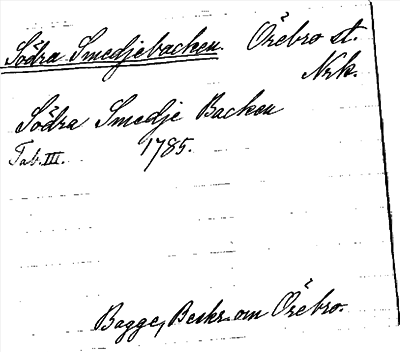 Södra Smedjebacken. Örebro st.
Nrk.
Södra Smedje Backen
Tab. III. 1785.
Bagge, Beskr. om Örebro.